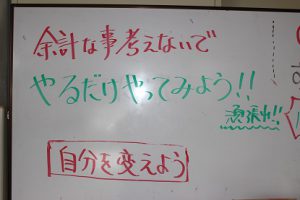 余計な事考えないで
やるだけやってみよう!!
頑張れ!!
自分を変えよう